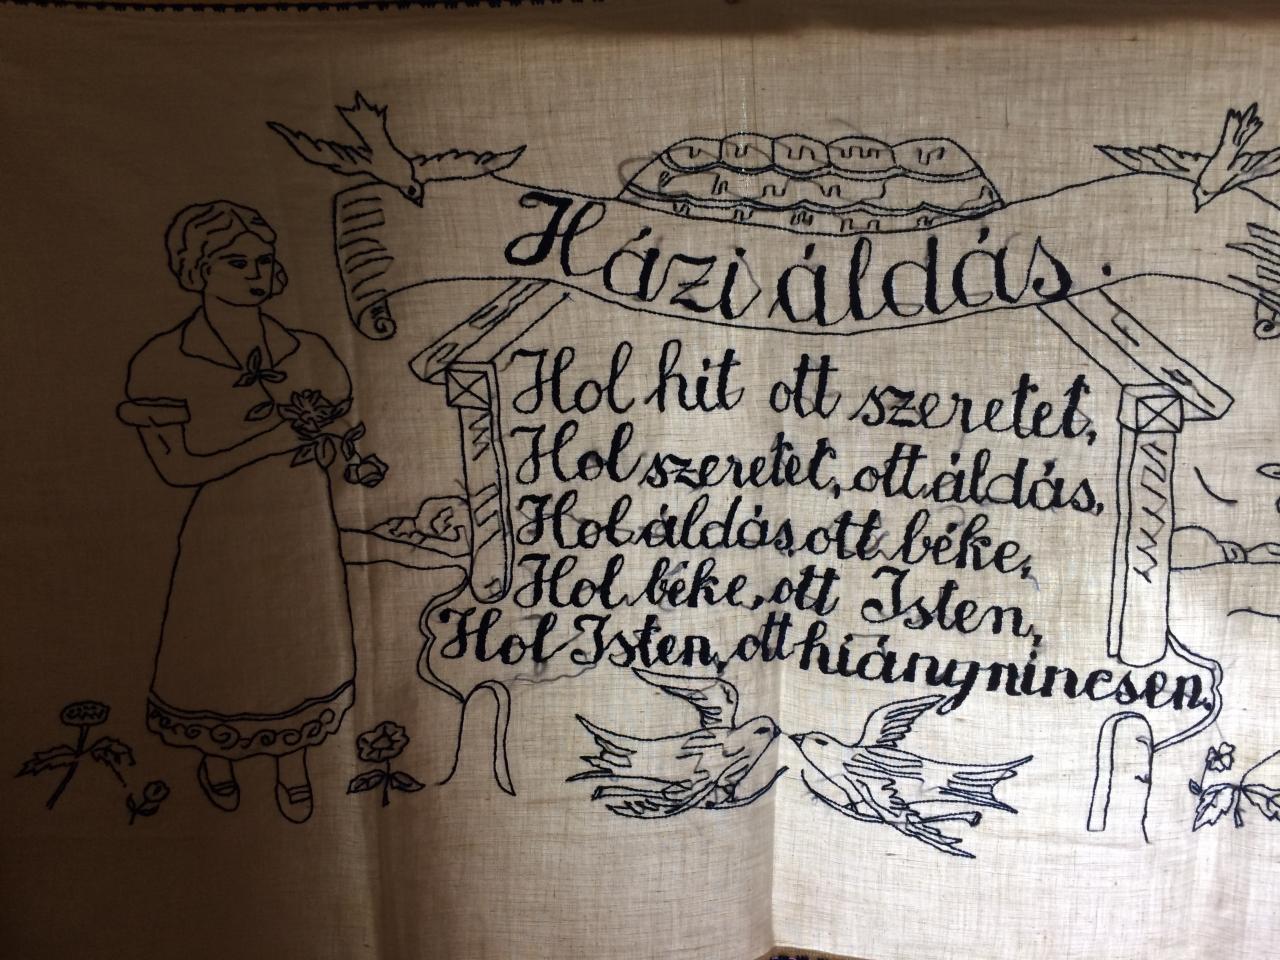 Házi áldás.
Hol hit ott szeretet,
Hol szeretet, ott áldás,
Hol áldás, ott béke,
Hol béke, ott Isten,
Hol Isten, ott hiány nincsen.